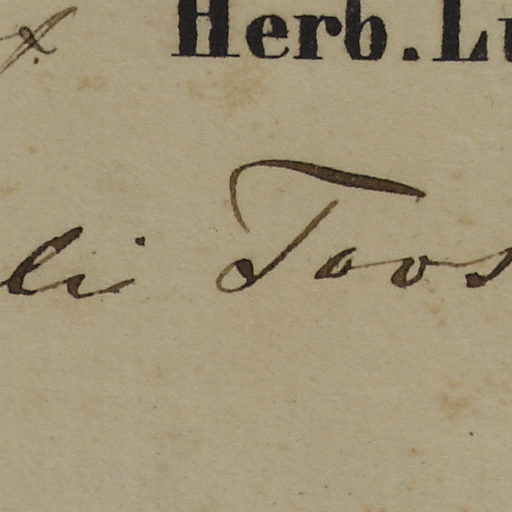 Herb. Lu
li Toos